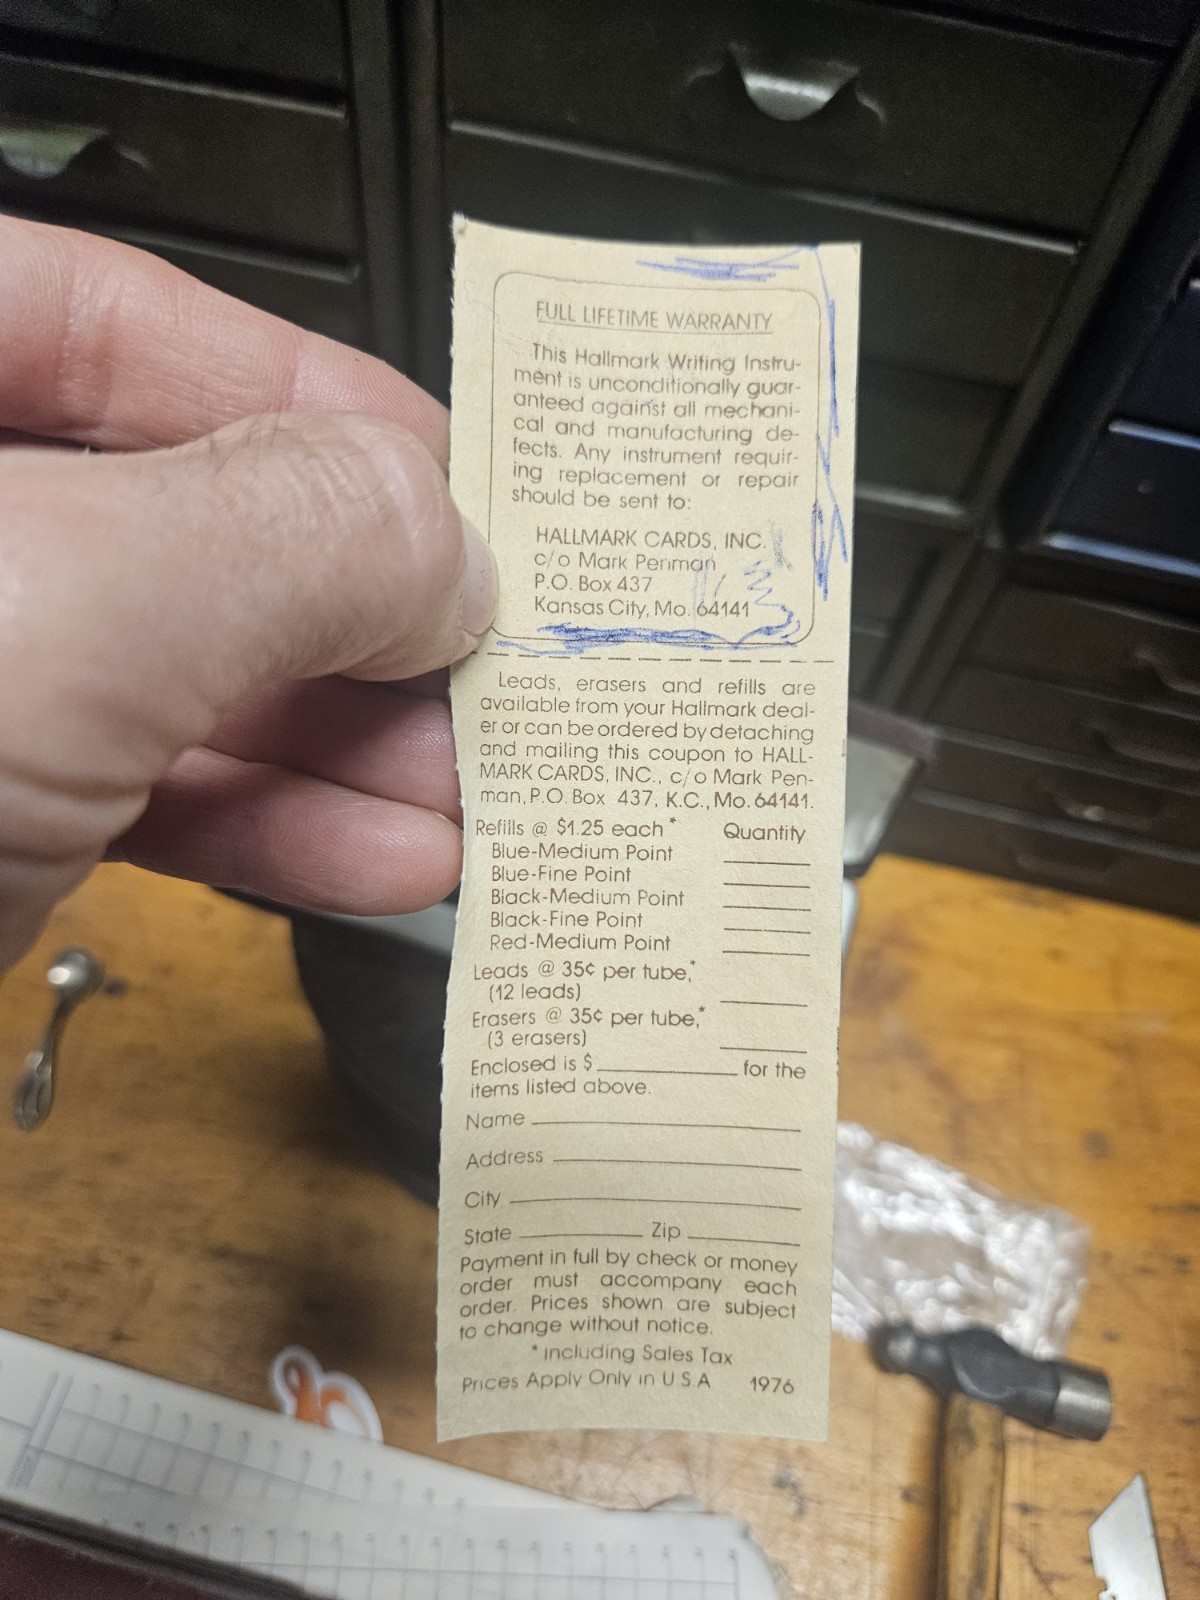 FULL LIFETIME WARRANTY
This Hallmark Writing Instru-
ment is unconditionally guar-
anteed against all mechani-
cal and manufacturing de-
fects. Any instrument requir-
ing replacement or repair
should be sent to:
HALLMARK CARDS, INC.
c/o Mark Penman
P.O. Box 437
Kansas City, Mo. 64141
Leads, erasers and refills are
available from your Hallmark deal-
er or can be ordered by detaching
and mailing this coupon to HALL-
MARK CARDS, INC., c/o Mark Pen-
man, P.O. Box 437, K.C., Mo. 64141.
Refills @ $1.25 each* Quantity
Blue-Medium Point
Blue-Fine Point
Black-Medium Point
Black-Fine Point
Red-Medium Point
Leads @ 35¢ per tube,*
(12 leads)
Erasers @ 35¢ per tube,*
(3 erasers)
Enclosed is $ for the
items listed above.
Name
Address
City
State Zip
Payment in full by check or money
order must accompany each
order. Prices shown are subject
to change without notice.
*Including Sales Tax
Prices Apply Only in U S A 1976